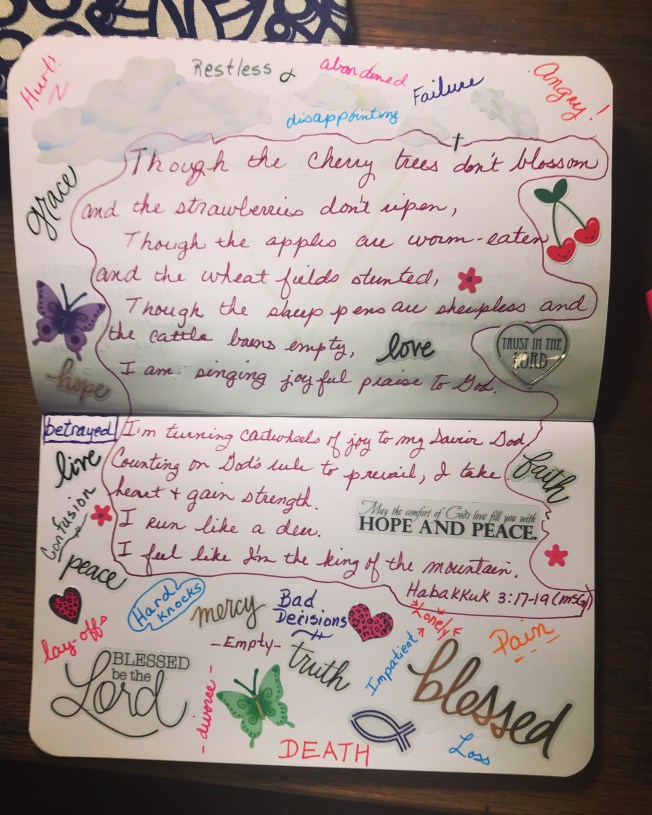 Hurt!
Restless
abandoned
Failure
Angry!
disappointing
grace
Though the cherry trees don't blossom
and the strawberries don't ripen,
Though the apples are worm-eaten
and the wheat fields stunted,
Though the sheep pens are sheepless and
the cattle barns empty,
love
TRUST IN THE
LORD
hope
I am singing joyful praise to God.
betrayed
I'm turning cartwheels of joy to my Savior God
Counting on God's rule to prevail, I take
faith
live
heart & gain strength.
Confusion
May the comfort of God's love fill you with
HOPE AND PEACE.
I run like a deer.
peace
I feel like I'm the king of the mountain.
Habakkuk 3:17-19 (msg)
Hard
Knocks
mercy
Bad
Decisions
Lonely
Pain
lay-offs
-Empty-
truth
Impatient
BLESSED
be the
Lord
- divorce -
blessed
DEATH
Loss